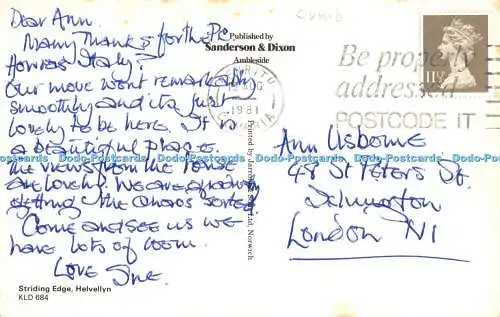 Dear Ann.
Many Thanks for the PC
How was Italy?
Our move went remarkably
smoothly and its just
lovely to be here. It is
a beautiful place.
the views from the house
are lovely. We are slowly
getting the chaos sorted
Come and see us we
have lots of room.
Love Sue.
Striding Edge, Helvellyn
KLD 684
Cumb
Published by
Sanderson & Dixon
Ambleside
1981
Be properly
addressed
POSTCODE IT
Ann Usborne
48 St Peters St.
Islington
London N1
Dodo-Postcards.com